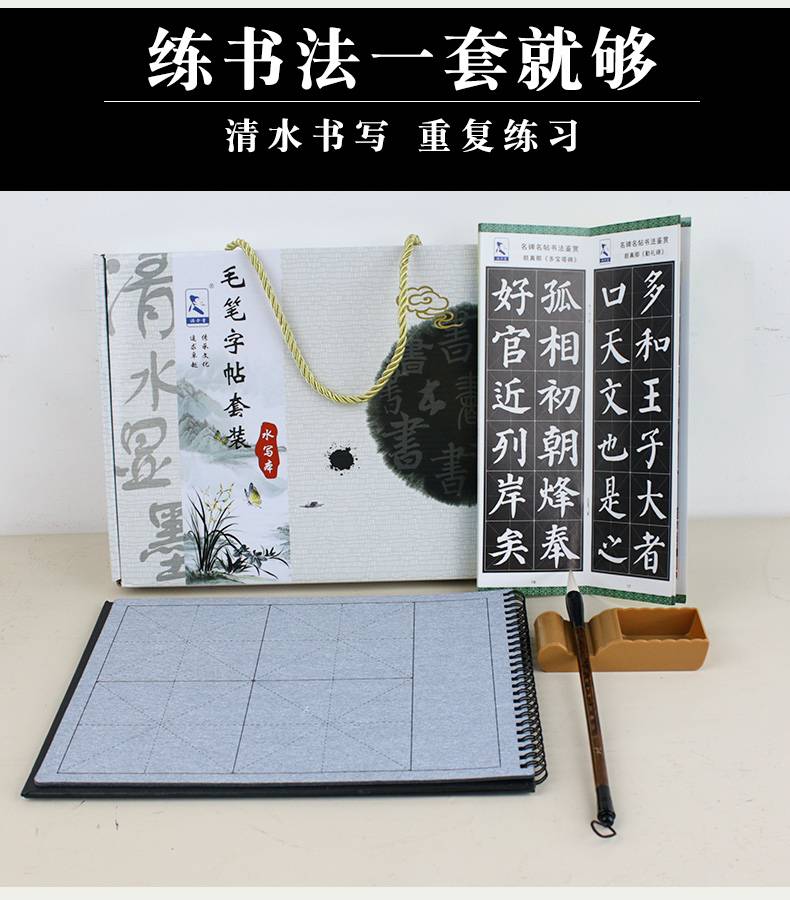 练书法一套就够
清水书写 重复练习
清水显墨
毛笔字帖套装
水写本
传承文化
追求卓越
書
書
名碑名帖书法鉴赏
颜真卿《多宝塔碑》
孤相初朝烽奉
好官近列岸矣
名碑名帖书法鉴赏
颜真卿《勤礼碑》
多和王子大者
口天文也是之